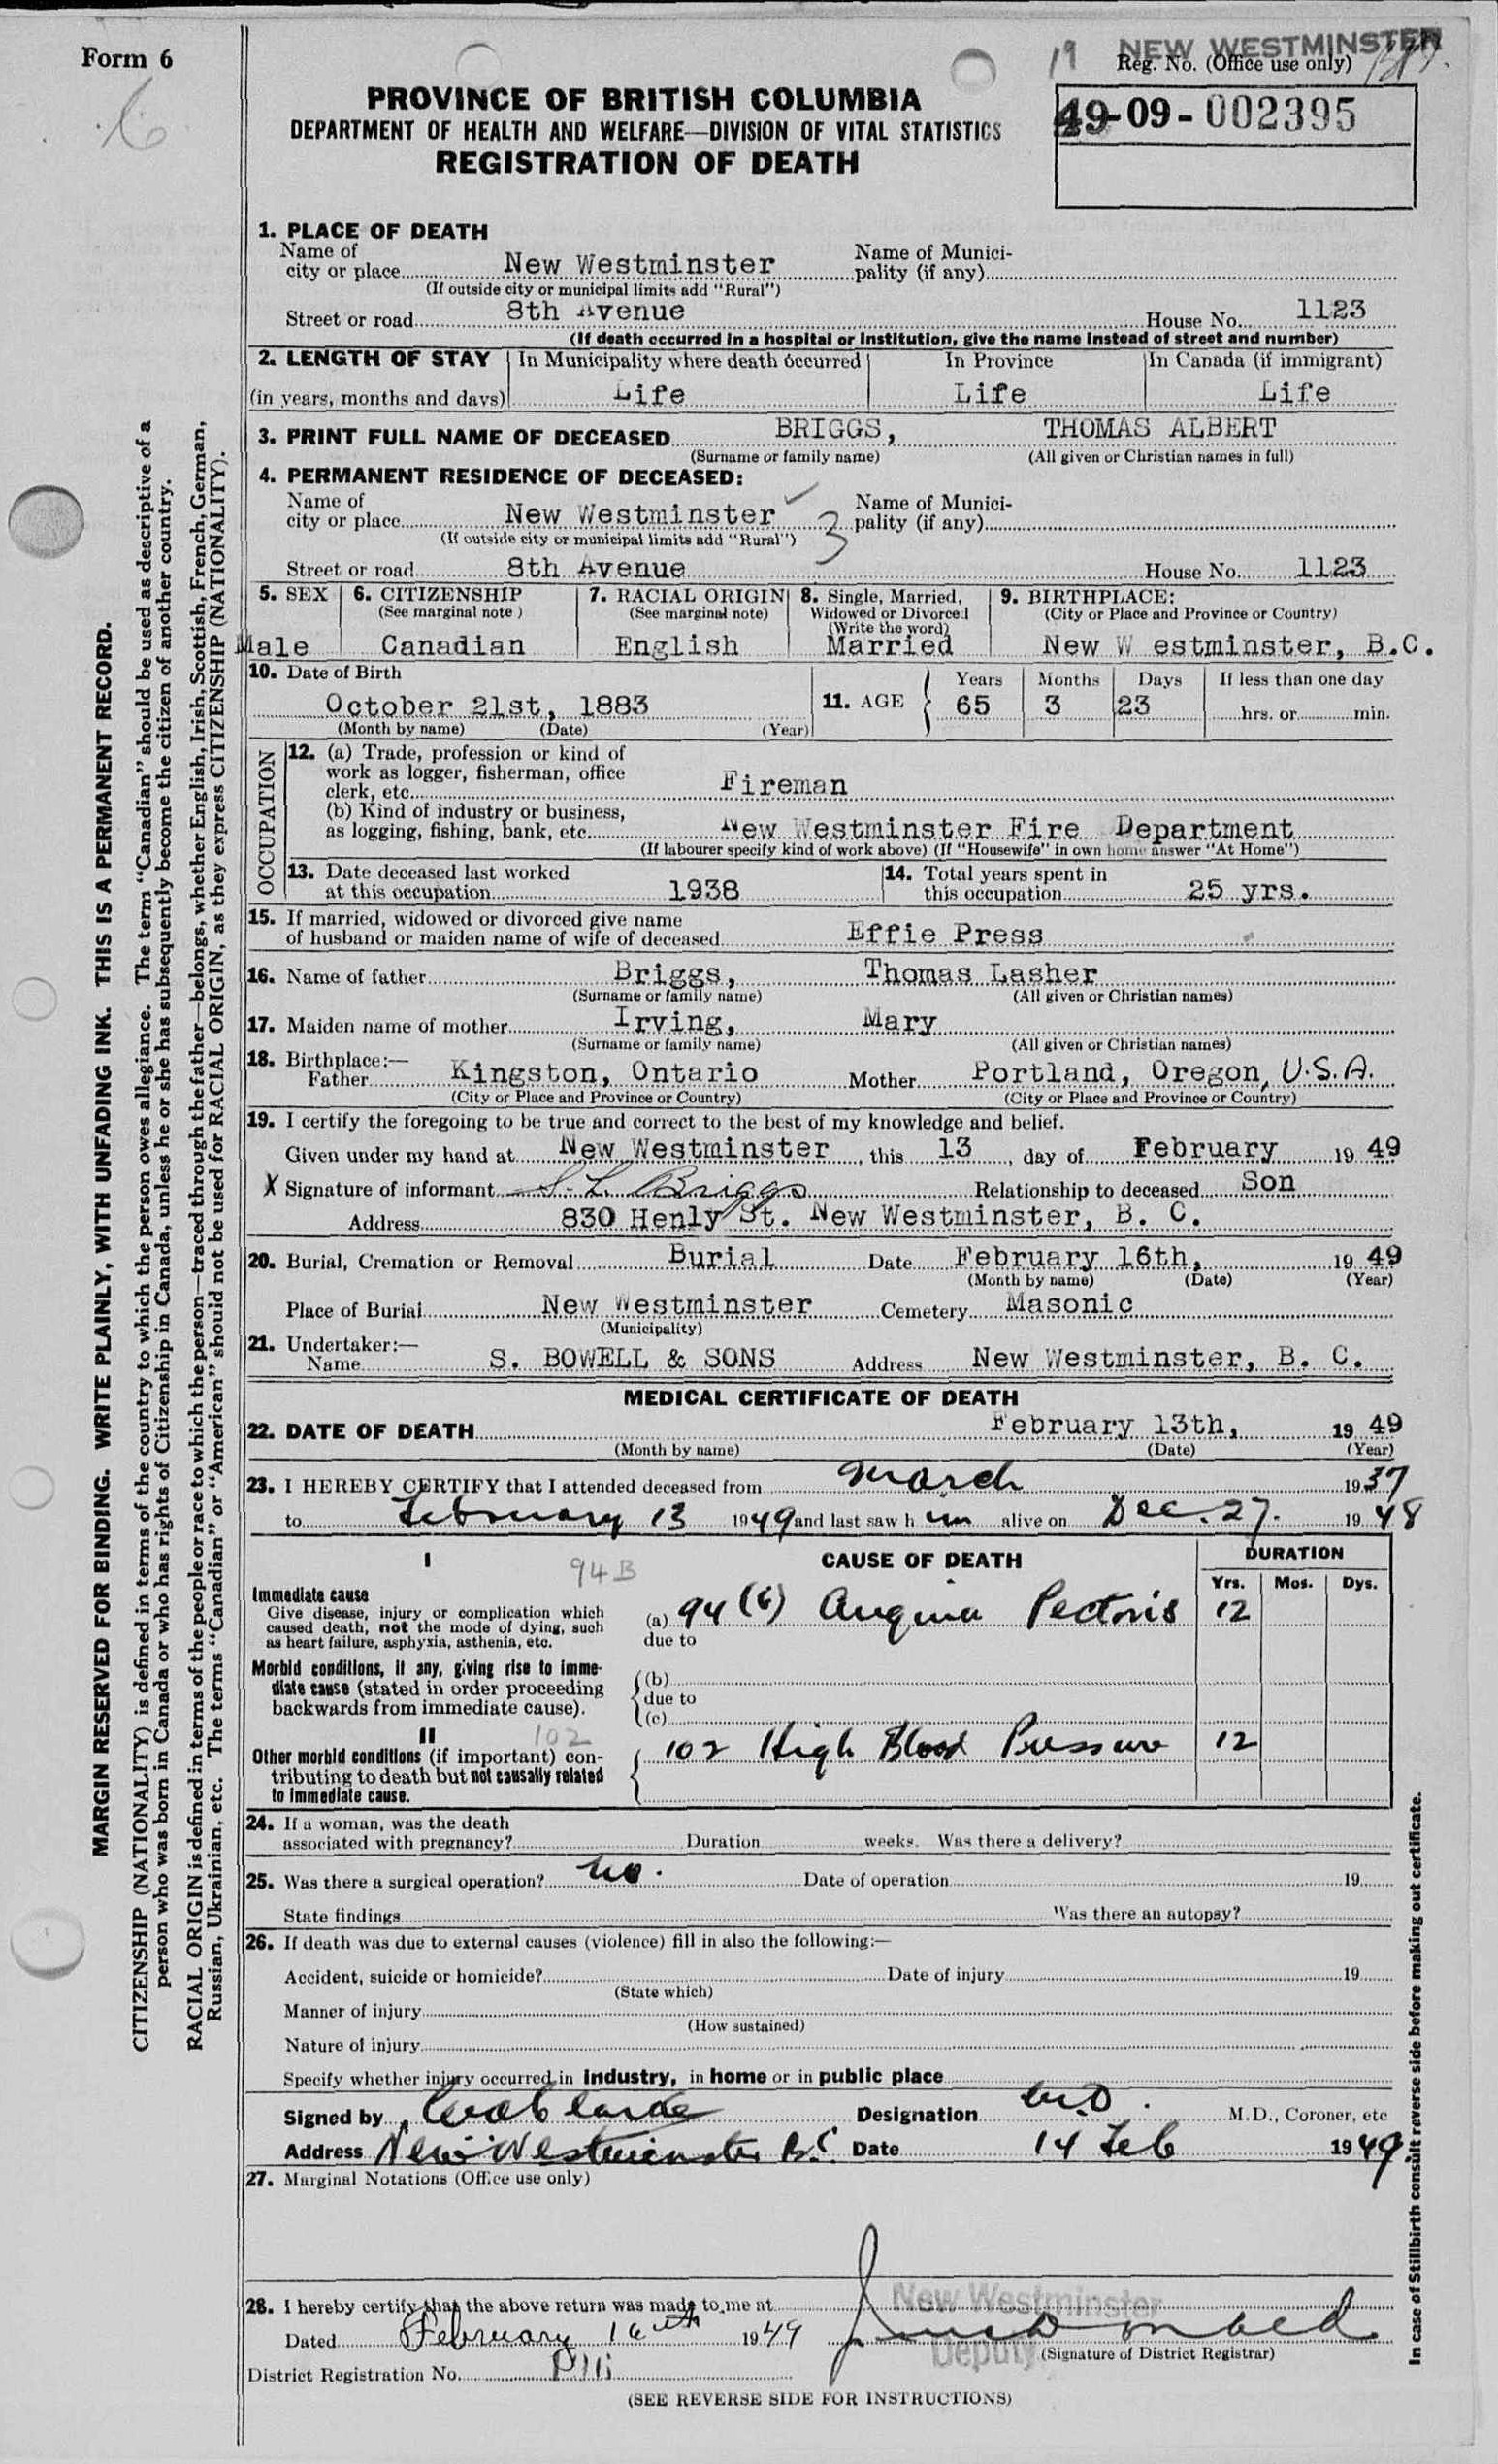 Form 6
6
19 NEW WESTMINSTER
Reg. No. (Office use only)
49-09-002395
PROVINCE OF BRITISH COLUMBIA
DEPARTMENT OF HEALTH AND WELFARE—DIVISION OF VITAL STATISTICS
REGISTRATION OF DEATH
1. PLACE OF DEATH
Name of city or place New Westminster Name of Municipality (if any)
(If outside city or municipal limits add "Rural")
Street or road 8th Avenue House No. 1123
(If death occurred in a hospital or institution, give the name instead of street and number)
2. LENGTH OF STAY In Municipality where death occurred In Province In Canada (if immigrant)
(in years, months and days) Life Life Life
3. PRINT FULL NAME OF DECEASED BRIGGS, THOMAS ALBERT
(Surname or family name) (All given or Christian names in full)
4. PERMANENT RESIDENCE OF DECEASED:
Name of city or place New Westminster 3 Name of Municipality (if any)
(If outside city or municipal limits add "Rural")
Street or road 8th Avenue House No. 1123
5. SEX 6. CITIZENSHIP 7. RACIAL ORIGIN 8. Single, Married, 9. BIRTHPLACE:
(See marginal note) (See marginal note) Widowed or Divorced (City or Place and Province or Country)
(Write the word)
Male Canadian English Married New W estminster, B.C.
10. Date of Birth Years Months Days If less than one day
October 21st, 1883 11. AGE 65 3 23 hrs. or min.
(Month by name) (Date) (Year)
OCCUPATION
12. (a) Trade, profession or kind of
work as logger, fisherman, office
clerk, etc. Fireman
(b) Kind of industry or business,
as logging, fishing, bank, etc. New Westminster Fire Department
(If labourer specify kind of work above) (If "Housewife" in own home answer "At Home")
13. Date deceased last worked 14. Total years spent in
at this occupation 1938 this occupation 25 yrs.
15. If married, widowed or divorced give name
of husband or maiden name of wife of deceased Effie Press
16. Name of father Briggs, Thomas Lasher
(Surname or family name) (All given or Christian names)
17. Maiden name of mother Irving, Mary
(Surname or family name) (All given or Christian names)
18. Birthplace:—
Father Kingston, Ontario Mother Portland, Oregon, U.S.A.
(City or Place and Province or Country) (City or Place and Province or Country)
19. I certify the foregoing to be true and correct to the best of my knowledge and belief.
Given under my hand at New Westminster, this 13, day of February 19 49
X Signature of informant S. L. Briggs Relationship to deceased Son
Address 830 Henly St. New Westminster, B. C.
20. Burial, Cremation or Removal Burial Date February 16th, 19 49
(Month by name) (Date) (Year)
Place of Burial New Westminster Cemetery Masonic
(Municipality)
21. Undertaker:—
Name S. BOWELL & SONS Address New Westminster, B. C.
MEDICAL CERTIFICATE OF DEATH
22. DATE OF DEATH February 13th, 19 49
(Month by name) (Date) (Year)
23. I HEREBY CERTIFY that I attended deceased from March 1937
to February 13 1949 and last saw h im alive on Dec. 27. 19 48
I 94B CAUSE OF DEATH DURATION
Yrs. Mos. Dys.
Immediate cause
Give disease, injury or complication which (a) 94 (b) Angina Pectoris 12
caused death, not the mode of dying, such
as heart failure, asphyxia, asthenia, etc. due to
Morbid conditions, if any, giving rise to imme- (b)
diate cause (stated in order proceeding due to
backwards from immediate cause). (c)
II 102
Other morbid conditions (if important) con- 102 High Blood Pressure 12
tributing to death but not causally related
to immediate cause.
24. If a woman, was the death
associated with pregnancy? Duration weeks. Was there a delivery?
25. Was there a surgical operation? no. Date of operation 19
State findings Was there an autopsy?
26. If death was due to external causes (violence) fill in also the following:—
Accident, suicide or homicide? Date of injury 19
(State which)
Manner of injury
(How sustained)
Nature of injury
Specify whether injury occurred in industry, in home or in public place
Signed by Designation M.D. M.D., Coroner, etc
Address New Westminster B.C. Date 14 Feb 1949.
27. Marginal Notations (Office use only)
28. I hereby certify that the above return was made to me at New Westminster
Dated February 16th 1949
Deputy (Signature of District Registrar)
District Registration No.
(SEE REVERSE SIDE FOR INSTRUCTIONS)
MARGIN RESERVED FOR BINDING. WRITE PLAINLY, WITH UNFADING INK. THIS IS A PERMANENT RECORD.
CITIZENSHIP (NATIONALITY) is defined in terms of the country to which the person owes allegiance. The term "Canadian" should be used as descriptive of a
person who was born in Canada or who has rights of Citizenship in Canada, unless he or she has subsequently become the citizen of another country.
RACIAL ORIGIN is defined in terms of the people or race to which the person—traced through the father—belongs, whether English, Irish, Scottish, French, German,
Russian, Ukrainian, etc. The terms "Canadian" or "American" should not be used for RACIAL ORIGIN, as they express CITIZENSHIP (NATIONALITY).
In case of Stillbirth consult reverse side before making out certificate.